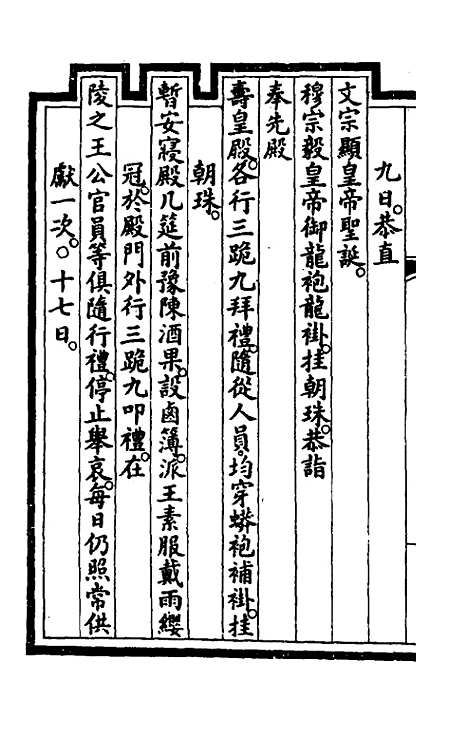 九日。恭直
文宗顯皇帝聖誕。
穆宗毅皇帝御龍袍龍褂。挂朝珠。恭詣
奉先殿
壽皇殿。各行三跪九拜禮。隨從人員。均穿蟒袍補褂。挂
朝珠。
暫安寢殿几筵前豫陳酒果。設鹵簿。派王素服戴雨纓
冠。於殿門外行三跪九叩禮。在
陵之王公官員等俱隨行禮。停止舉哀。每日仍照常供
獻一次。○十七日。